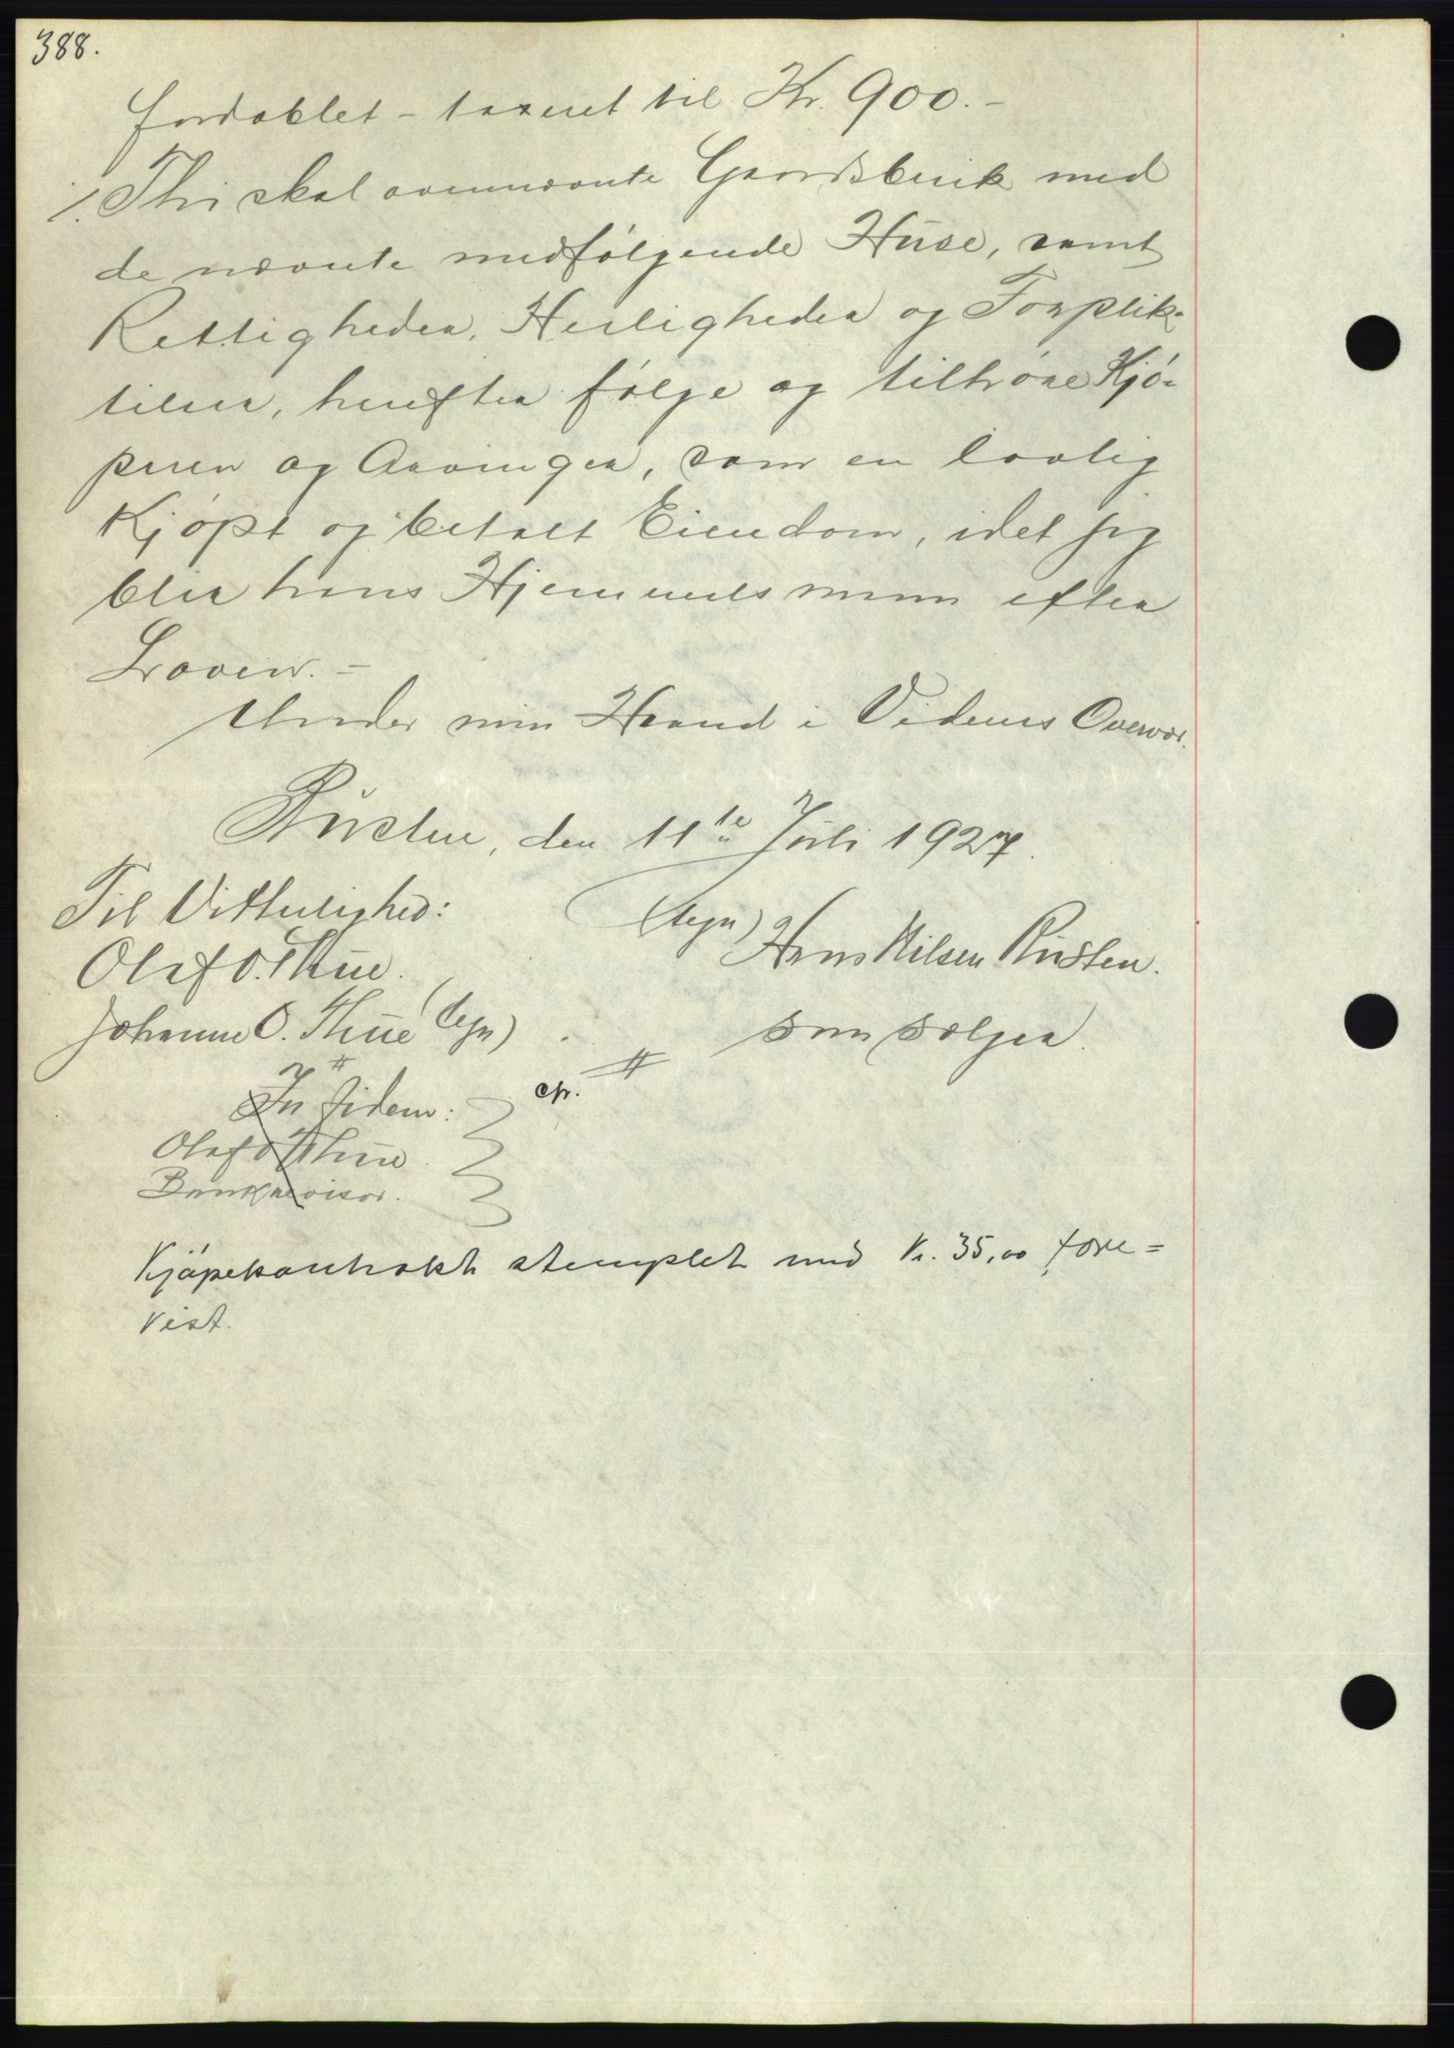 388.
fordoblet - taxeret til Kr. 900.-
/. Thi skal ovennævnte Gaardsbruk med
de nævnte medfølgende Huse, samt
Rettigheder, Herligheder og Forplik-
telser, herefter følge og tilhøre Kjø-
peren og Arvinger, som en lovlig
Kjøpt og betalt Eiendom, idet jeg
blir hans Hjemmelsmann efter
Loven. -
Under min Haand i Vidners Overvær.
Rusten, den 11te Juli 1927.
Til Vitterlighed:
(tegn) Hans Nilsen Rusten.
Olaf O. Thue.
Johanne O. Thue (tegn)
som sælger.
In fidem:
cp.
Olaf O Thue.
Bankrevisor.
Kjøpekontrakt stemplet med Kr. 35,00 fore=
vist.